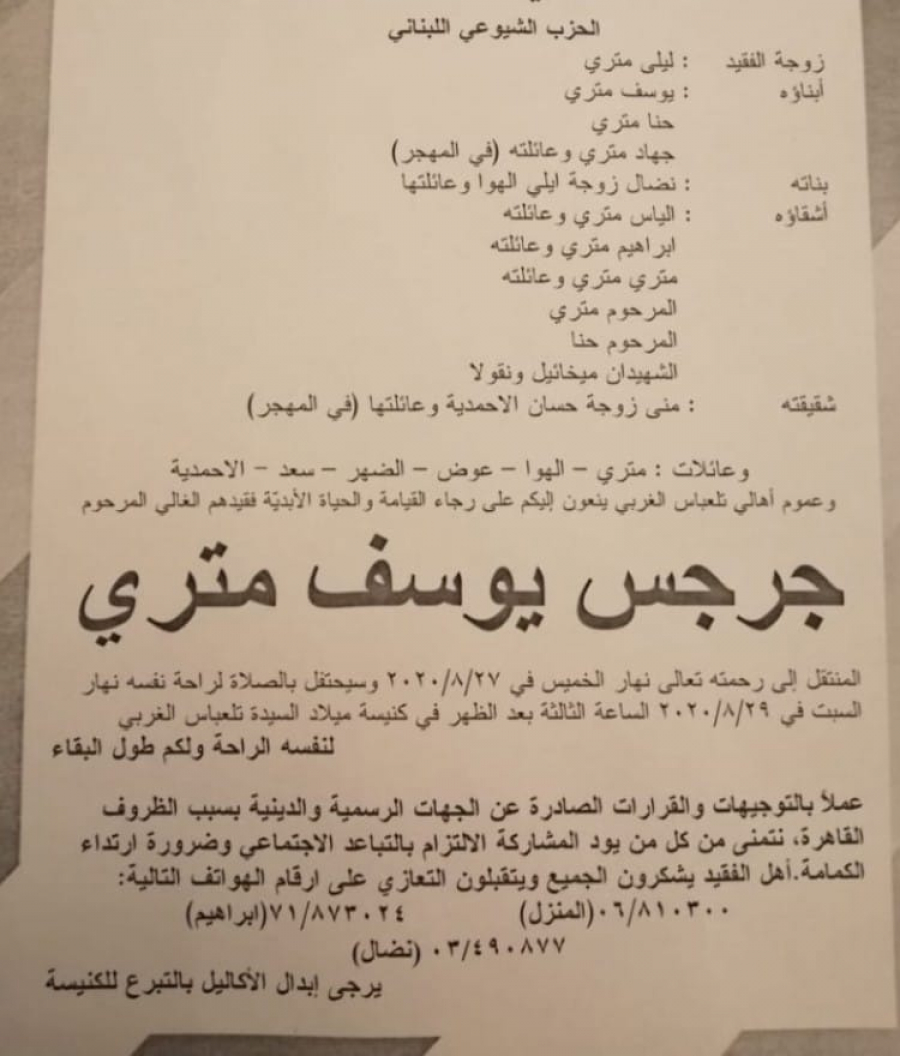 الحزب الشيوعي اللبناني
زوجة الفقيد : ليلى متري
أبناؤه : يوسف متري
حنا متري
جهاد متري وعائلته (في المهجر)
بناته : نضال زوجة ايلي الهوا وعائلتها
أشقاؤه : الياس متري وعائلته
ابراهيم متري وعائلته
متري متري وعائلته
المرحوم متري
المرحوم حنا
الشهيدان ميخائيل ونقولا
شقيقته : منى زوجة حسان الاحمدية وعائلتها (في المهجر)
وعائلات : متري – الهوا – عوض – الضهر – سعد – الاحمدية
وعموم أهالي تلعباس الغربي ينعون إليكم على رجاء القيامة والحياة الأبديّة فقيدهم الغالي المرحوم
جرجس يوسف متري
المنتقل إلى رحمته تعالى نهار الخميس في ٢٠٢٠/٨/٢٧ وسيحتفل بالصلاة لراحة نفسه نهار
السبت في ٢٠٢٠/٨/٢٩ الساعة الثالثة بعد الظهر في كنيسة ميلاد السيدة تلعباس الغربي
لنفسه الراحة ولكم طول البقاء
عملاً بالتوجيهات والقرارات الصادرة عن الجهات الرسمية والدينية بسبب الظروف
القاهرة، نتمنى من كل من يود المشاركة الالتزام بالتباعد الاجتماعي وضرورة ارتداء
الكمامة.أهل الفقيد يشكرون الجميع ويتقبلون التعازي على ارقام الهواتف التالية:
٠٦/٨١٠٣٠٠(المنزل) ٧١/٨٧٣٠٢٤(ابراهيم)
٠٣/٤٩٠٨٧٧ (نضال)
يرجى إبدال الأكاليل بالتبرع للكنيسة